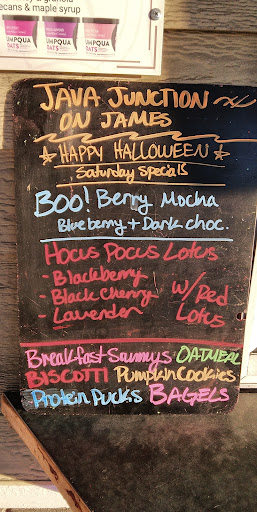 ecans & maple syrup
UMPQUA
OATS
UMPQUA
OATS
UMPQUA
OATS
JAVA JUNCTION
ON JAMES
HAPPY HALLOWEEN
Saturday Specials
Boo! Berry Mocha
Blueberry + Dark choc.
Hocus Pocus Lotus
- Blackberry
- Black Cherry
- Lavender
w/ Red
Lotus
Breakfast Sammys OATMEAL
BISCOTTI Pumpkin Cookies
Protein Pucks BAGELS